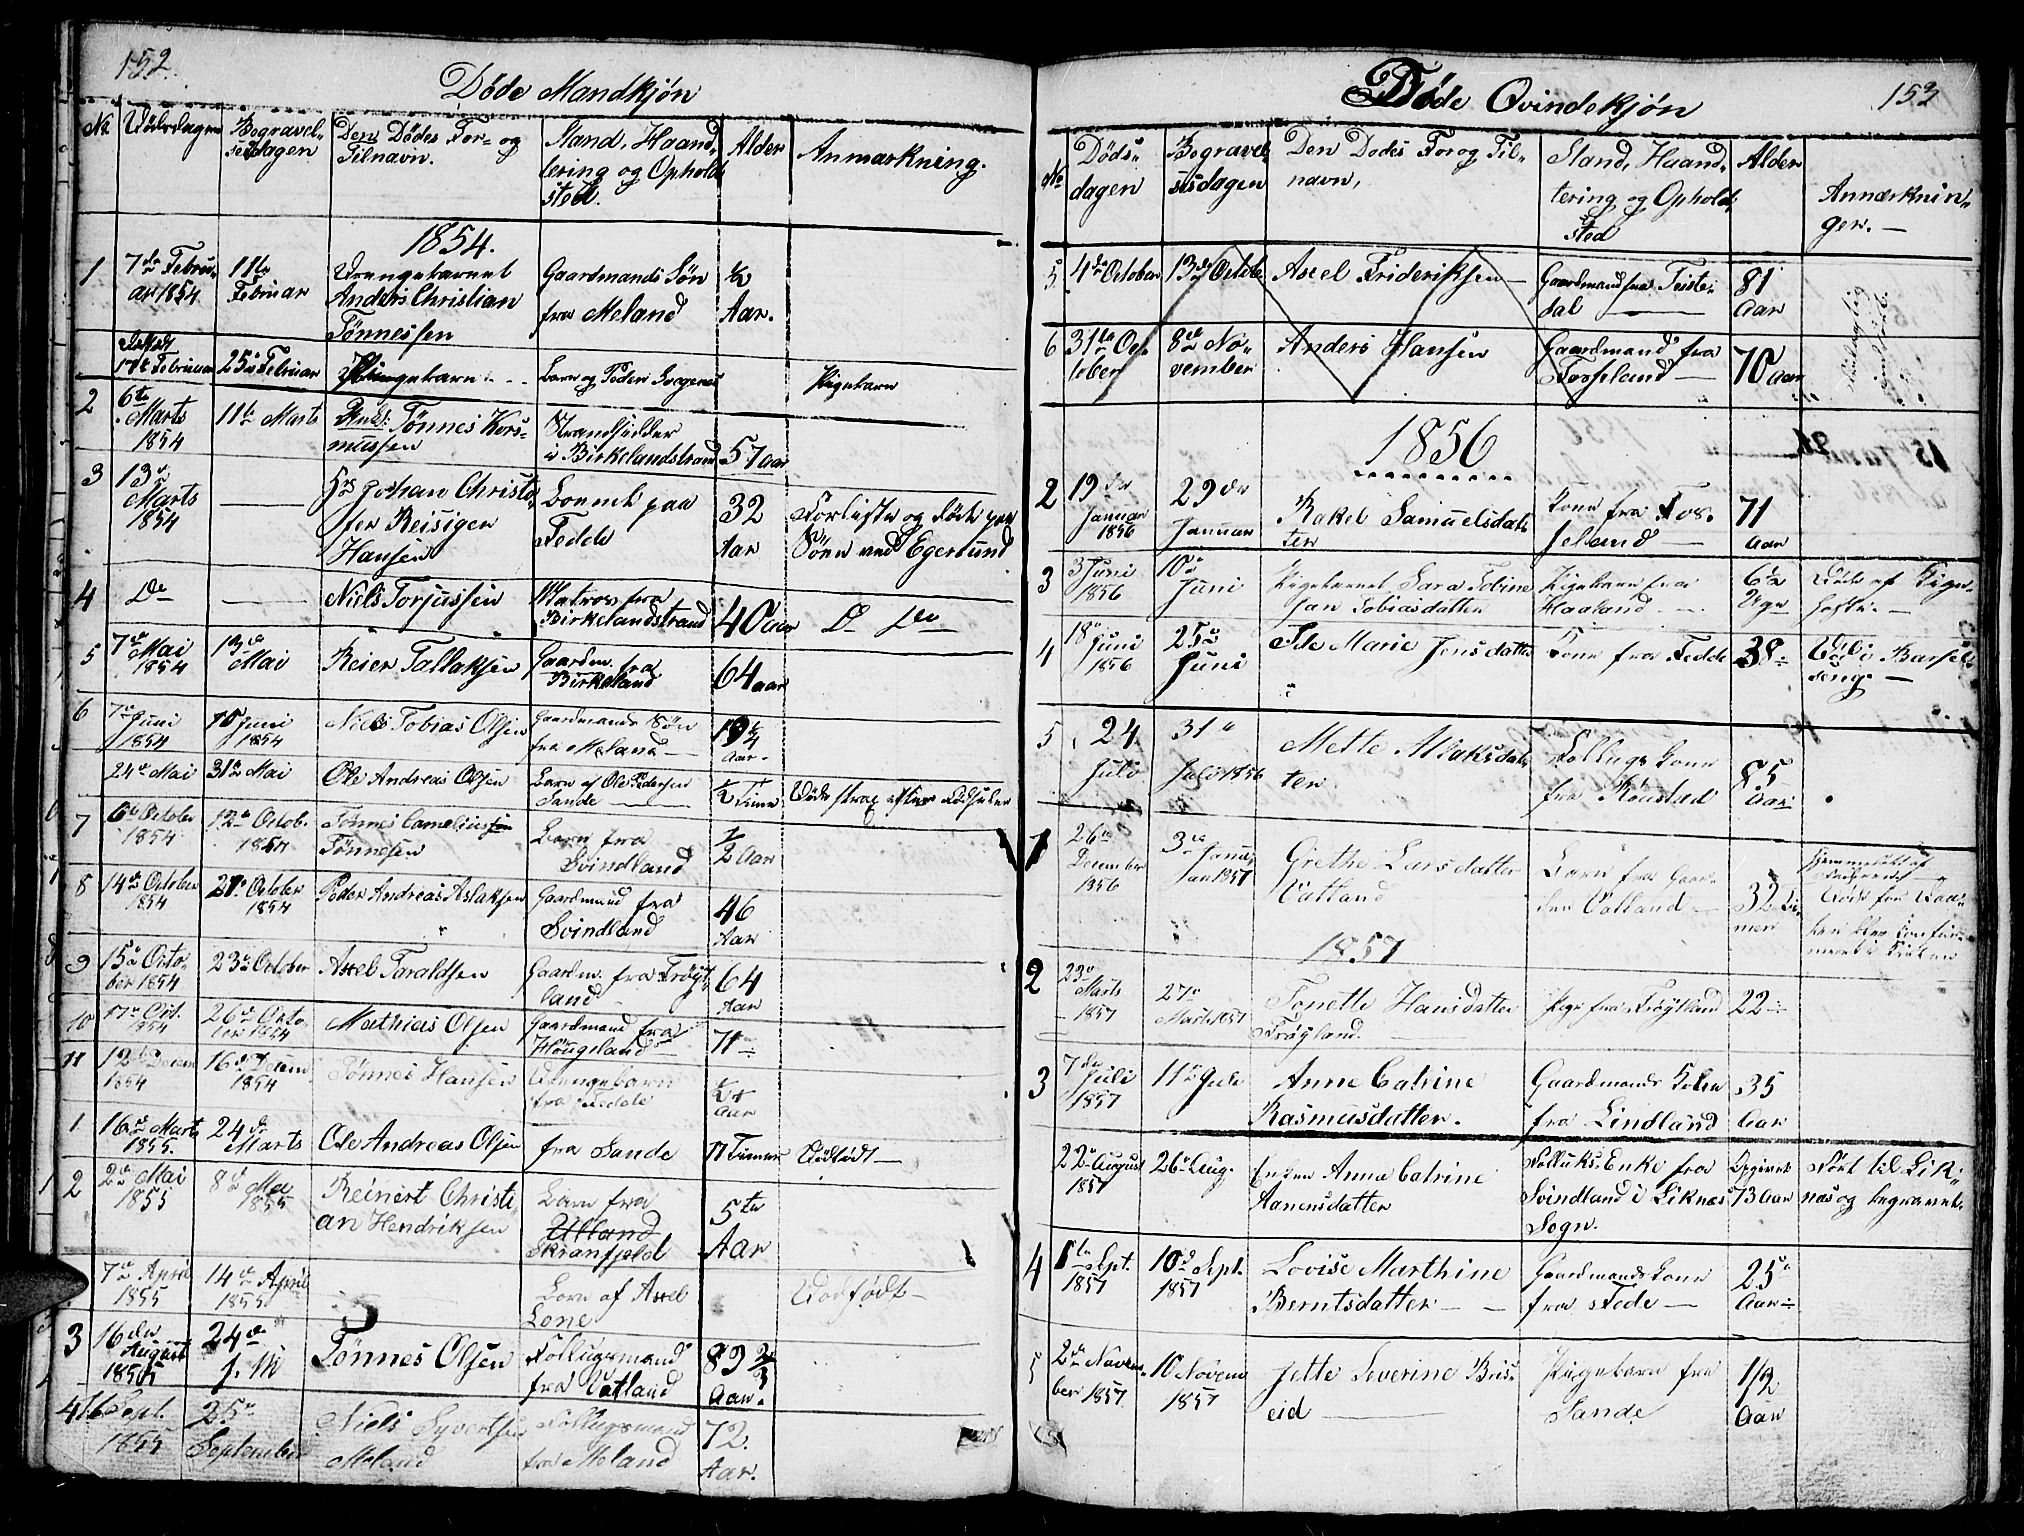 152.
Døde Mandkjøn
No. Dødsdagen Begravel-sesdagen Den Dødes For- og Tilnavn. Stand, Haandtering og Opholdssted. Alder Anmærkning.
1854.
1 7de Februar 1854 11te Februar Drengebarnet Anders Christian Tønnessen Gaardmands Søn fra Meland ½ Aar.
17de Februar 25de Februar Barn og Peder Pigebarn
2 6te Marts 1854 11te Marts Tønnes Korsmussen Strandsidder i Birkelandstrand 57 aar
3 13de Marts 1854 Johan Christoffer Reisiger Hansen paa Fedde 32 Aar Forliste og døde paa Søen ved Egersund
4 De Niels Torjussen Matros fra Birkelandstrand 40 aar D De
5 7de Mai 1854 13de Mai Reier Tallaksen Gaardm. fra Birkeland 64 aar
6 7de Juni 1854 15 Juni 1854 Niels Tobias Olsen Gaardmands Søn fra Meland 19 ¼ Aar
24de Mai 31te Mai Ole Andreas Olsen Barn af Ole Pedersen Sande ½ Time Døde strax efter Fødselen
7 6te October 1854 12te Octob. 1854 Tønnes Corneliussen Tønnesen Barn fra Svindland ½ Aar
8 14de October 1854 21de October 1854 Peder Andreas Aslaksen Gaardmand fra Svindland 46 Aar
9 15de October 1854 23de October Axel Taraldsen Gaardm. fra Frøgtland 64 Aar
10 17de Oct. 1854 26de October 1854 Mathias Olsen Gaardmand fra Høugeland 71
11 12te Decem 1854 16de Decem. 1854 Tønnes Hansen Drengebarn fra Fedde ¼ Aar
1 16de Marts 1855. 24de Marts Ole Andreas Olsen fra Sande 11 Timer Dødfødt
2 2de Mai 1855 8de Mai 1855 Reinert Christian Hendriksen Barn fra Utland Skranfjeld 5te Aar
7de April 1855 14de April 1855 Barn af Axel Lone Dødfødt
3 16den August 1855 24de Tønnes Olsen Follugsmand fra Vatland 89 ⅔ Aar.
4 16 Sept. 1855 25de September Niels Syvertsen Meland Follugsmand fra Meland 72. Aar.
153
Døde Qvindekjøn
No. Døds-dagen Begravel-sesdagen Den Dødes For og Til-navn, Stand, Haand-tering og Ophold-sted Alder Anmærknin-ger.
5 4de October 13de Octobr Axel Frideriksen Gaardmand fra Teiste-dal 81 Aar
6 31te Oc-tober 8de No-vember Anders Hansen Gaardmand fra Fosseland 70 aar
1856
2 19de Januar 1856 29de Januar Rakel Samuelsdat-ter Kone fra Fos-seland 71 aar
3 3 Juni 1856 10de Juni Pigebarnet Sara Tobine Jan Tobiasdatter Pigebarn fra Haaland 6te Uger
4 18de Juni 1856 25de Juni Ide Marie Jensdatter Kone fra Fedde 38 Døde i Barsel-seng
5 24 Juli 31te Juli 1856 Mette Aslaksdat-ter Follugs kone fra Rønstad 85 Aar
1 26de December 1856 3de Januar 1857 Grethe Larsdatter Vatland Barn fra Gaar-den Vatland 32 Ti-mer Hjemmedøbt af Døde før Daa-ben blev confir-meret i Kirken
1857
2 23de Marts 1857 27de Marts 1857 Tonette Hansdatter Frøgland. Pige fra Frøgtland 22
3 7de Juli 1857 11te Juli Anne Catrine Rasmusdatter. Gaardmands Kone fra Lindland 35 Aar
22de August 1857 26de Aug. Enken Anne Catrine Aanensdatter Folluks Enke fra Svindland i Liknæs Sogn. Opgivet 73 Aar Ført til Lik-næs og begravet.
4 1te Sept. 1857 10de Sept. 1857 Lovise Marthine Berntsdatter Gaardmands kone fra Fede 25 Aar
5 2de Novem-ber 1857 10 Novem 1857 Jette Severine Bris-eid Pigebarn fra Sande 1/2 Aar